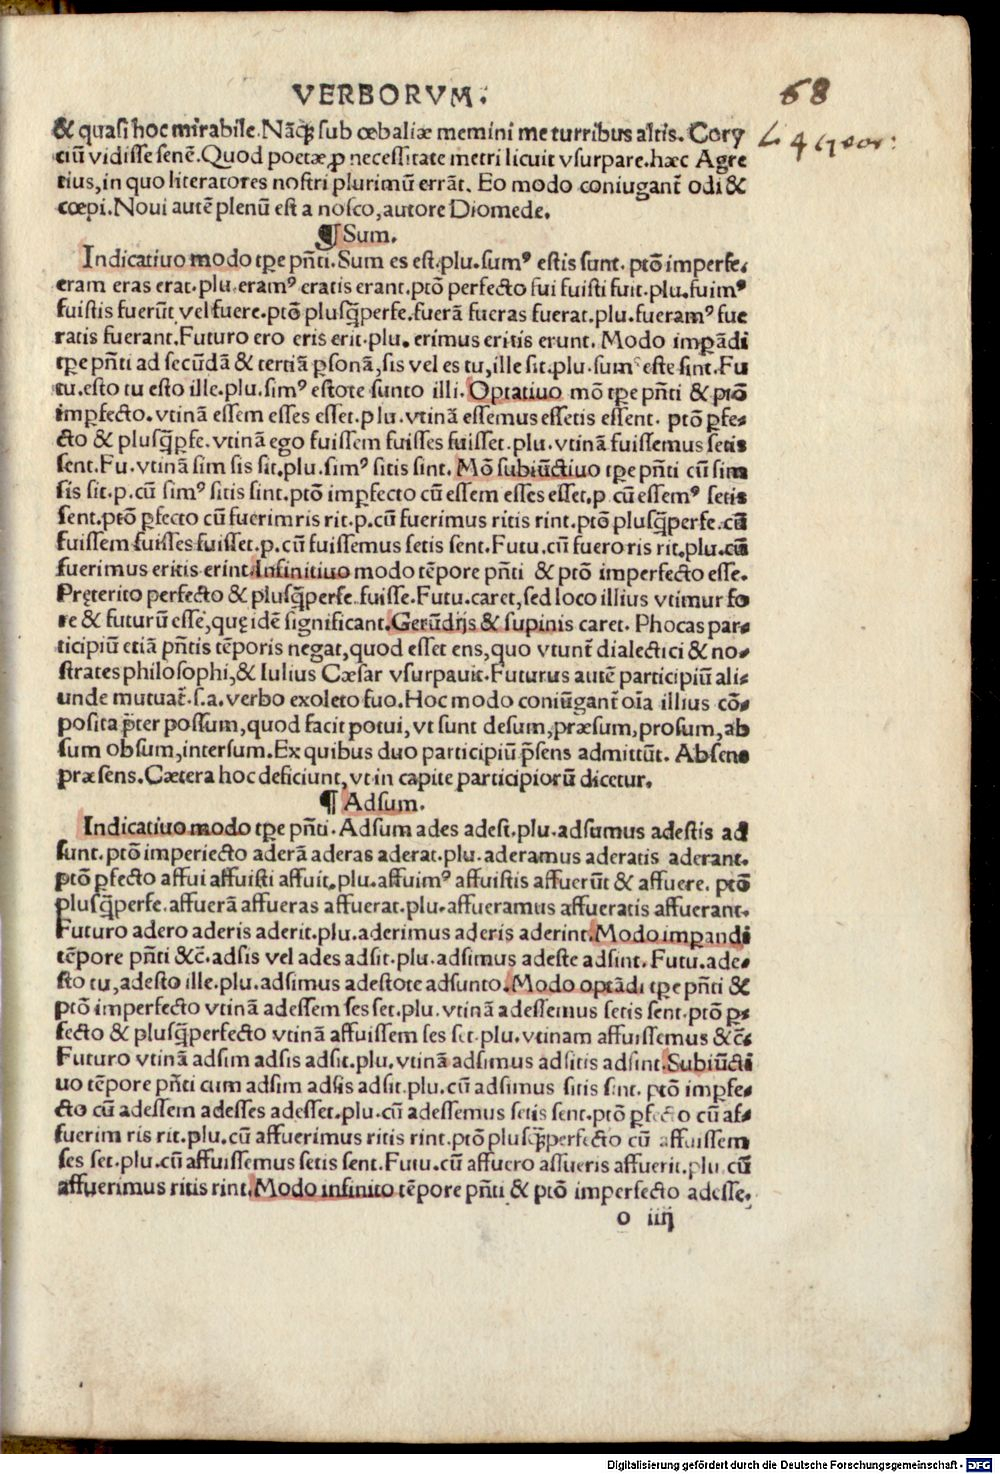 VERBORVM.
68
& quasi hoc mirabile. Nāq; sub œbaliæ memini me turribus altis. Cory
L. 4 georː
ciū vidisse senē. Quod poetæ ꝓ necessitate metri licuit vsurpare. hæc Agre
tius, in quo literatores nostri plurimū errāt. Eo modo coniugant̄ odi &
cœpi. Noui autē plenū est a nosco, autore Diomede.
¶ Sum.
Indicatiuo modo tp̄e pn̄ti. Sum es est. plu. sumꝰ estis sunt. ptō imperfe.
eram eras erat. plu. eramꝰ eratis erant. ptō perfecto fui fuisti fuit. plu. fuimꝰ
fuistis fuerūt vel fuere. ptō plusq̄perfe. fuerā fueras fuerat. plu. fueramꝰ fue
ratis fuerant. Futuro ero eris erit. plu. erimus eritis erunt. Modo impādi
tp̄e pn̄ti ad secūdā & tertiā ꝑsonā, sis vel es tu, ille sit. plu. sumꝰ este sint. Fu
tu. esto tu esto ille. plu. simꝰ estote sunto illi. Optatiuo mō tp̄e pn̄ti & ptō
imꝑfecto. vtinā essem esses esset. plu. vtinā essemus essetis essent. ptō ꝑfe-
cto & plusq̄ꝑfe. vtinā ego fuissem fuisses fuisset. plu. vtinā fuissemus setis
sent. Fu. vtinā sim sis sit. plu. simꝰ sitis sint. Mō subiūctiuo tp̄e pn̄ti cū sim
sis sit. p. cū simꝰ sitis sint. ptō imꝑfecto cū essem esses esset. p. cū essemꝰ setis
sent. ptō ꝑfecto cū fuerim ris rit. p. cū fuerimus ritis rint. ptō plusq̄perfe. cū
fuissem fuisses fuisset. p. cū fuissemus setis sent. Futu. cū fuero ris rit. plu. cū
fuerimus eritis erint. Infinitiuo modo tēpore pn̄ti & ptō imperfecto esse.
Pręterito perfecto & plusq̄perfe. fuisse. Futu. caret, sed loco illius vtimur fo
re & futurū esse, quę idē significant. Gerūdijs & supinis caret. Phocas par-
ticipiū etiā pn̄tis tēporis negat, quod esset ens, quo vtunt̄ dialectici & no-
strates philosophi, & Iulius Cæsar vsurpauit. Futurus autē participiū ali-
unde mutuat̄. s. a. verbo exoleto fuo. Hoc modo coniūgant̄ oīa illius cō-
posita p̄ter possum, quod facit potui, vt sunt desum, præsum, prosum, ab
sum obsum, intersum. Ex quibus duo participiū p̄sens admittūt. Absens
præsens. Cætera hoc deficiunt, vt in capite participiorū dicetur.
¶ Adsum.
Indicatiuo modo tp̄e pn̄ti. Adsum ades adest. plu. adsumus adestis ad
sunt. ptō imperfecto aderā aderas aderat. plu. aderamus aderatis aderant.
ptō ꝑfecto affui affuisti affuit. plu. affuimꝰ affuistis affuerūt & affuere. ptō
plusq̄perfe. affuerā affueras affuerat. plu. affueramus affueratis affuerant.
Futuro adero aderis aderit. plu. aderimus aderis aderint. Modo imꝑandi
tēpore pn̄ti &c̄. adsis vel ades adsit. plu. adsimus adeste adsint. Futu. ade-
sto tu, adesto ille. plu. adsimus adestote adsunto. Modo optādi tp̄e pn̄ti &
ptō imperfecto vtinā adessem ses set. plu. vtinā adessemus setis sent. ptō ꝑ-
fecto & plusq̄perfecto vtinā affuissem ses set. plu. vtinam affuissemus &c̄.
Futuro vtinā adsim adsis adsit. plu. vtinā adsimus adsitis adsint. Subiūcti
uo tēpore pn̄ti cum adsim adsis adsit. plu. cū adsimus sitis sint. ptō imꝑfe-
cto cū adessem adesses adesset. plu. cū adessemus setis sent. ptō ꝑfecto cū af-
fuerim ris rit. plu. cū affuerimus ritis rint. ptō plusq̄ꝑfecto cū affuissem
ses set. plu. cū affuissemus setis sent. Futu. cū affuero affueris affuerit. plu. cū
affuerimus ritis rint. Modo infinito tēpore pn̄ti & ptō imperfecto adesse.
o iiij
Digitalisierung gefördert durch die Deutsche Forschungsgemeinschaft - DFG